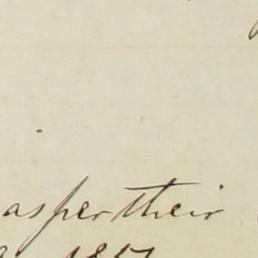 as per their
1851